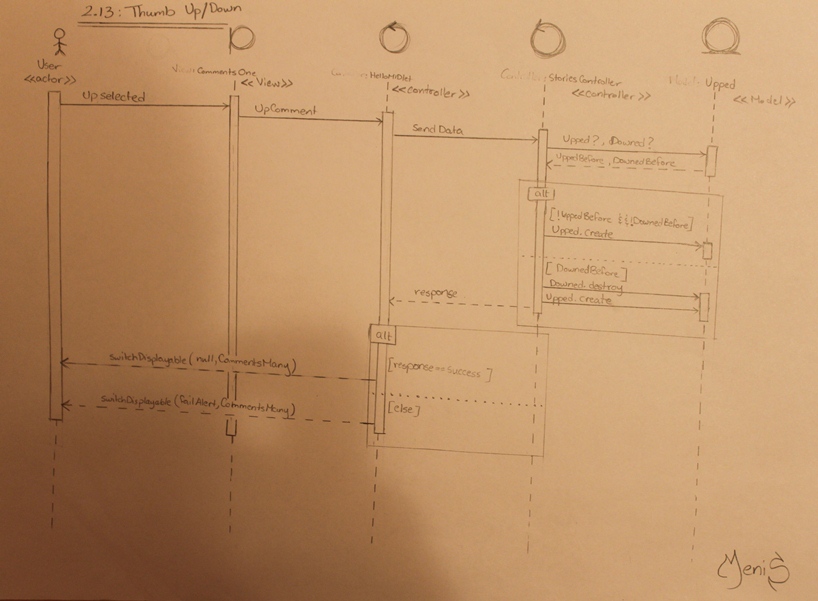 2.13: Thumb Up/Down
User
<<actor>>
Comments One
<<View>>
<<controller>>
Stories Controller
<<controller>>
Upped
<<Model>>
Up selected
UpComment
Send Data
Upped?, Downed?
UppedBefore, DownedBefore
alt
[!UppedBefore && !DownedBefore]
Upped.create
[DownedBefore]
Downed.destroy
Upped.create
response
alt
[response == success]
[else]
switchDisplayable(null, CommentsMany)
switchDisplayable(failAlert, CommentsMany)